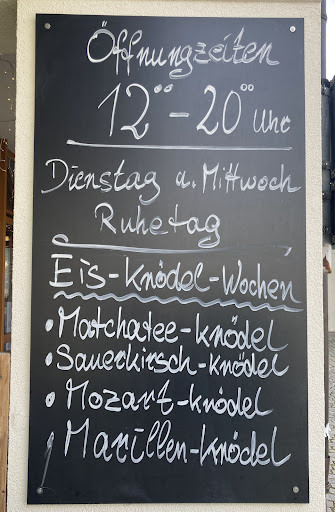 Öffnungzeiten
12°° - 20°° Uhr
Dienstag u. Mittwoch
Ruhetag
Eis-Knödel-Wochen
• Matchatee-knödel
• Sauerkirsch-knödel
• Mozart-knödel
• Marillen-knödel